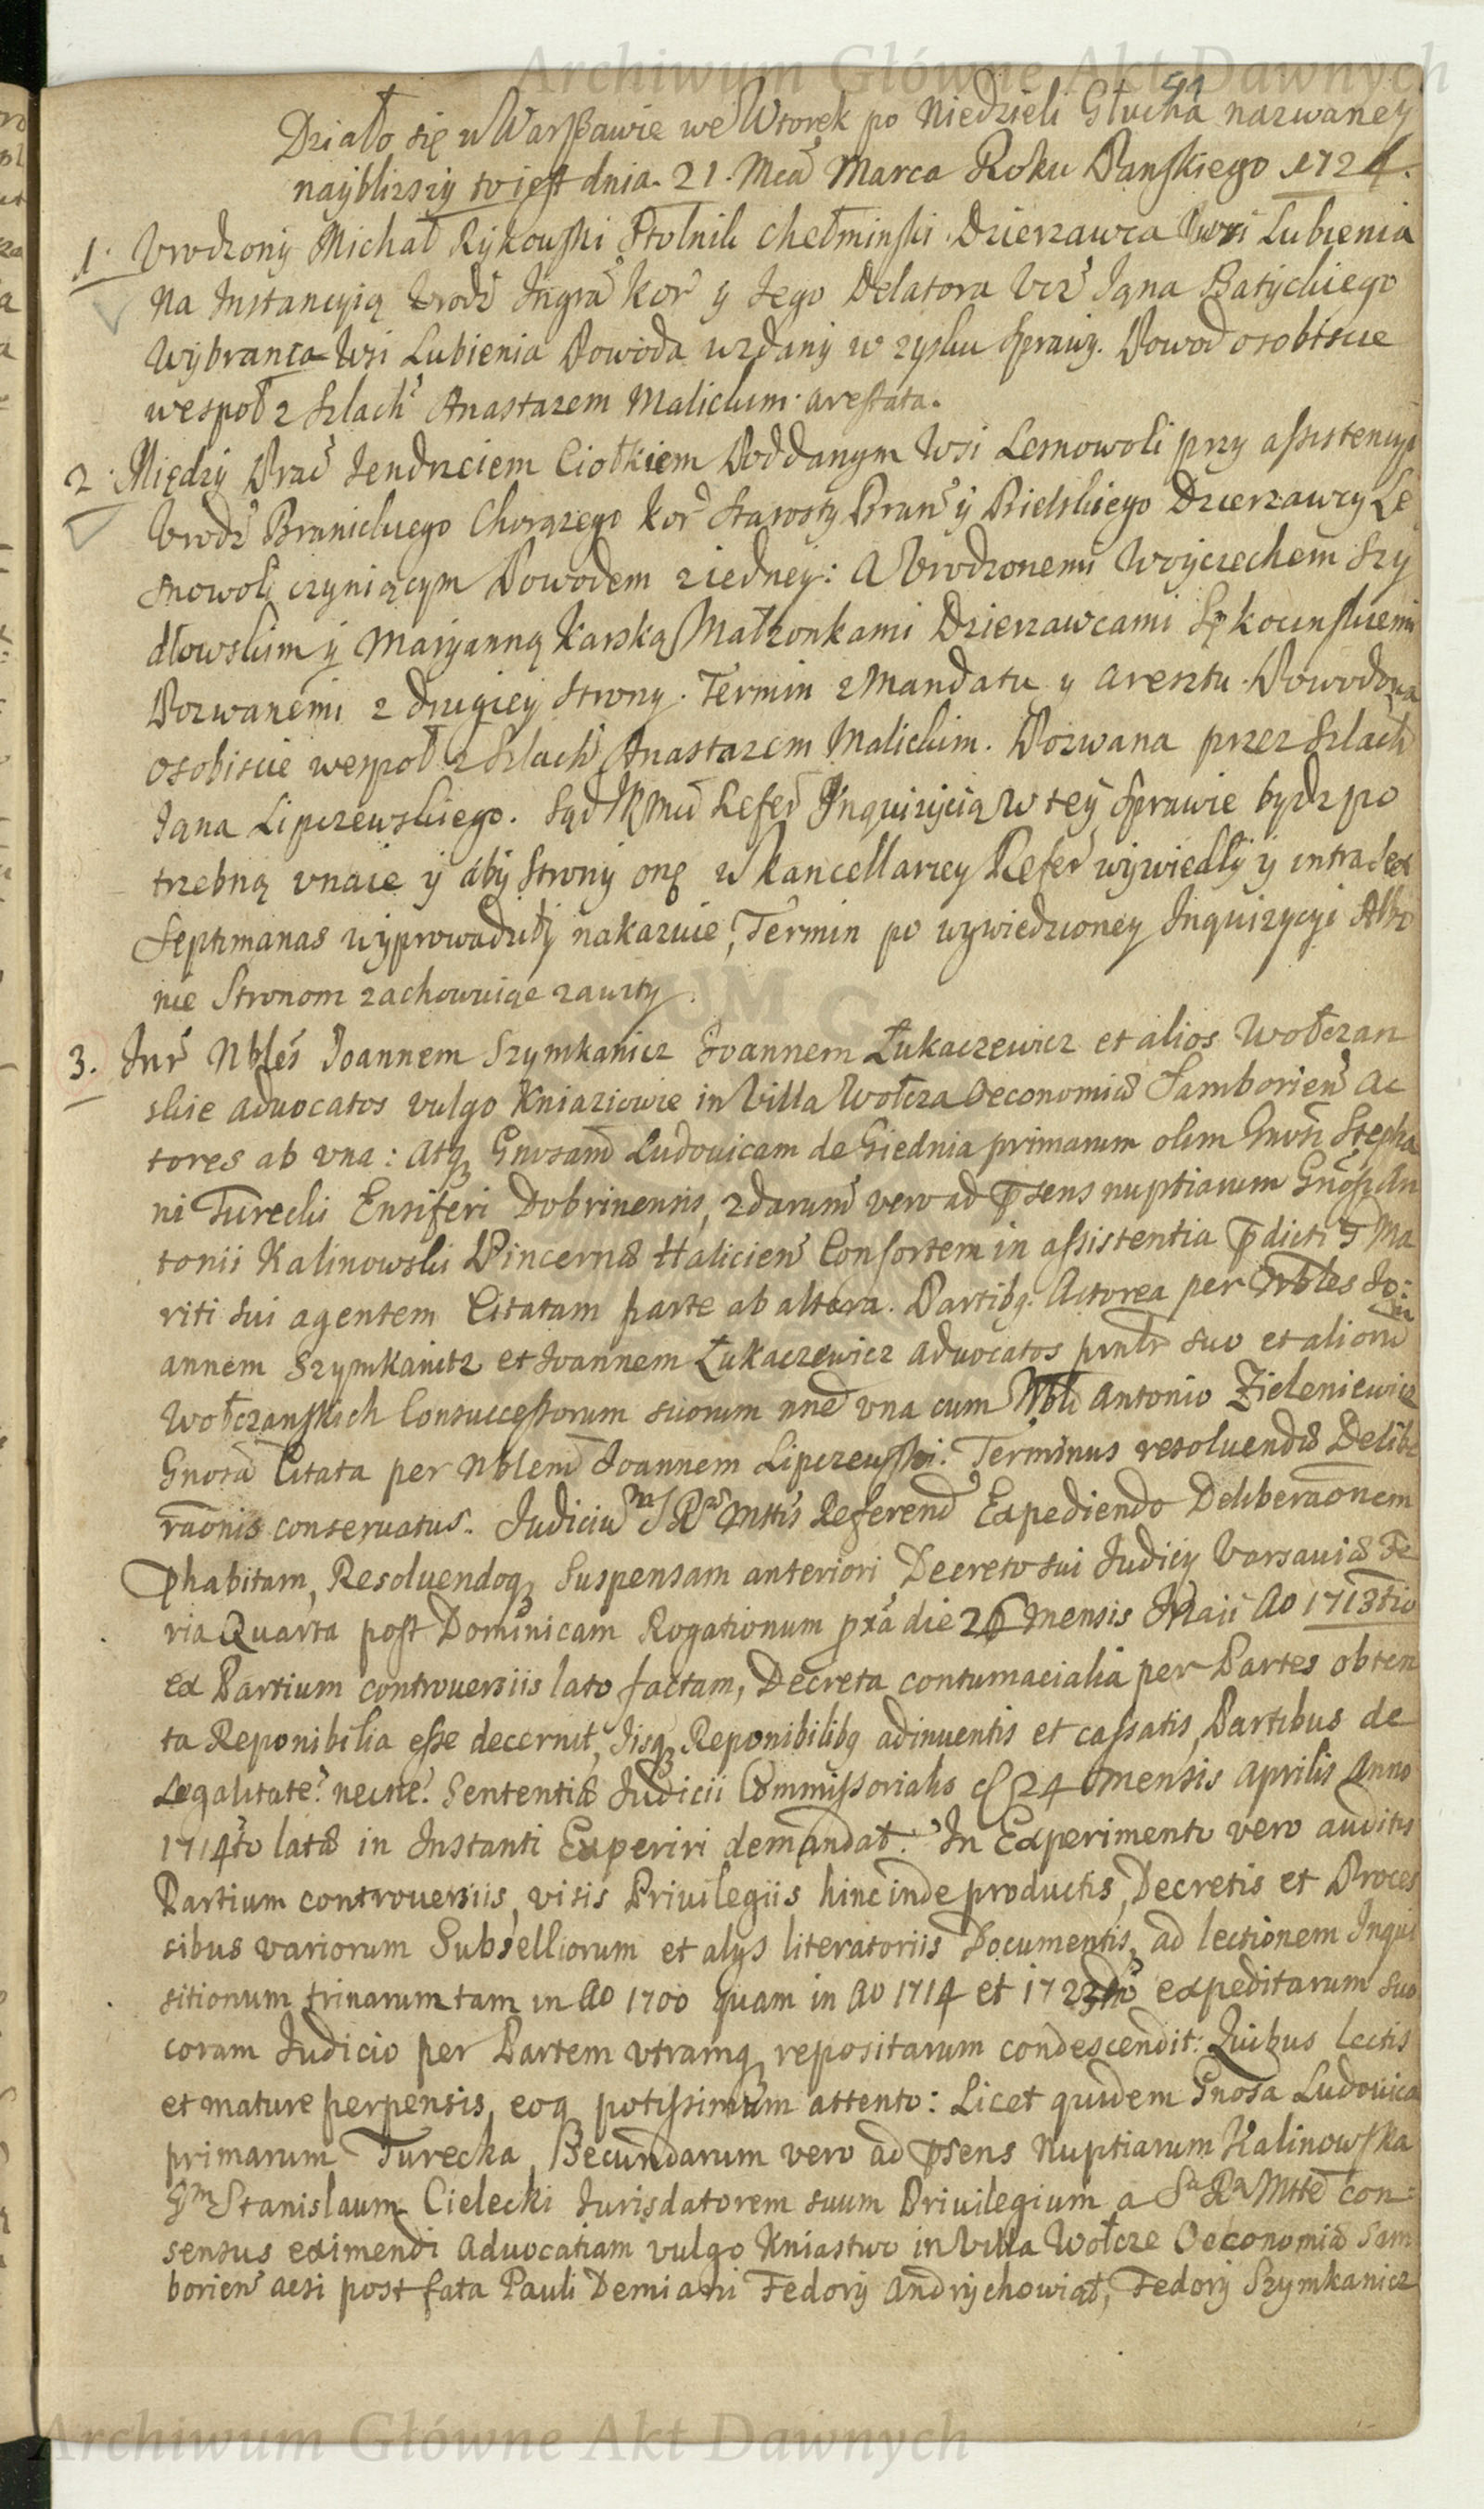 Archiwum Główne Akt Dawnych
51
Działo się w Warszawie we Wtorek po Niedzieli Głucha nazwaney
nayblizszy to iest dnia. 21. Mca Marca Roku Panskiego 1724.
1. Vrodzony Michał Rykowski Stolnik Chełminski Dzierzawca Wsi Lubienia
Na Instancyią Vrodz Ingra Kor y Jego Delatora Vcz Jana Batyckiego
Wybranca Wsi Lubienia Powoda wzdany w zysku sprawy. Powod osobiscie
wespoł z Szlach Anastazem Malickim. arestata.
2. Między Prac Jendrzeiem Ciołkiem Poddanym Wsi Lesnowoli przy assistencyi
Vrodz Branickiego Chorązego Kor Starosty Bran y Bielskiego Dzierzawcy Le
snowoli czyniącym Powodem z iedney: A Vrodzonemi Woyciechem Szy
dłowskim y Maryanną Karską Małzonkami Dzierzawcami Sękocinskiemi
Pozwanemi z drugiey strony. Termin z Mandatu y aresztu. Powodowa
osobiscie wespoł z Szlach Anastazem Malickim. Pozwana przez Szlach
Jana Lipczewskiego. Sąd JKMci Refer Inquizycią w tey sprawie bydz po
trzebną vnaie y aby strony onę w Kancellaryey Refer wywiedły y intra sex
septimanas wyprowadziły nakazuie, Termin po wywiedzioney Inquizycyi Albo
nie Stronom zachowuiąc zawity.
3. Intr Nbles Joannem Szymkanicz Joannem Łukaczewicz et alios Wołczan
skie advocatos vulgo Kniaziowie in Villa Wołcza Oeconomiæ Samborien Ac
tores ab vna: atq Gnosam Ludovicam de Giednia primarum olim Gnosi Stepha
ni Turecki Ensiferi Dobrinensis, 2darum vero ad psens nuptiarum Gnosi An
tonii Kalinowski Pincernæ Halicien Consortem in assistentia pdicti Ma
riti sui agentem Citatam parte ab altera. Partibq. Actorea per Nbles Jo:
annem Szymkanicz et Joannem Łukaczewicz advocatos pntr suo et aliorum
Wołczanskich Consuccessorum suorum nne vna cum Nbli Antonio Zieleniewicz
Gnosa Citata per Nblem Joannem Lipczewski. Terminus resoluendæ Delibe
raonis conseruatus. Judiciu SRæ Mttis Referend Expediendo Deliberaonem
phabitam, Resoluendoq Suspensam anteriori Decreto sui Judicij Varsaviæ Fe
ria Quarta post Dominicam Rogationum pxa die 26 mensis Maii Ao 1713tio
ex Partium controuersiis lato factam, Decreta contumacialia per Partes obten
ta Reponibilia esse decernit, Iisq Reponibilibq adinuentis et cassatis, Partibus de
Legalitate? necne? Sententiæ Judicii Commissorialis 24 mensis Aprilis Anno
1714to latæ in Instanti Experiri demandat. In Experimento vero auditis
Partium controuersiis, visis Privilegiis hinc inde productis, Decretis et Proces
sibus variorum Subselliorum et alys literatoriis Documentis, ad lectionem Inqui
sitionum trinarum tam in Ao 1700 quam in Ao 1714 et expeditarum suo
coram Judicio per Partem vtramq repositarum condescendit: Quibus lectis
et mature perpensis, eoq potissimum attento: Licet quidem Gnosa Ludovica
primarum Turecka, Secundarum vero ad psens Nuptiarum Kalinowska
Gm Stanislaum Cielecki Jurisdatorem suum Privilegium a Sa Ra Mtte con=
sensus eximendi Advocatiam vulgo Kniastwo in Villa Wołcze Oeconomiæ Sam
borien acsi post fata Pauli Demiani Fedory Andrychowiat, Fedory Szymkanicz
Archiwum Główne Akt Dawnych